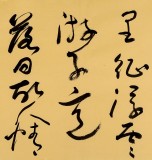 里征浮雲
游子意
落日故人情